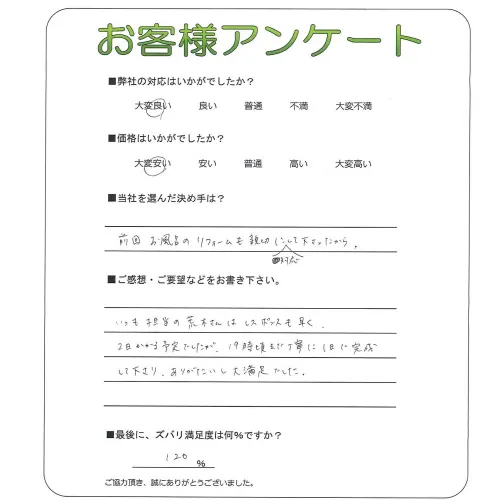 お客様アンケート
■弊社の対応はいかがでしたか？
大変良い 良い 普通 不満 大変不満
■価格はいかがでしたか？
大変安い 安い 普通 高い 大変高い
■当社を選んだ決め手は？
前回 お風呂の リフォームも 親切にして下さったから。
対応
■ご感想・ご要望などをお書き下さい。
いつも 担当の 荒木さんは レスポンスも 早く、
2日かかる予定でしたが、19時頃まで丁寧に 1日で完成
して下さり、ありがたいし大満足でした。
■最後に、ズバリ満足度は何%ですか？
120 %
ご協力頂き、誠にありがとうございました。